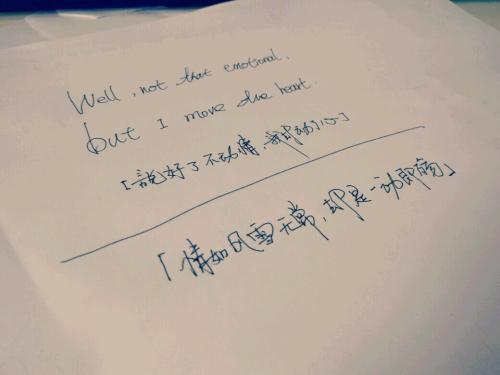 Well, not that emotional,
but I move the heart.
「說好了不动情,我却动了心」
「情如风雪无常,却是一动即伤」